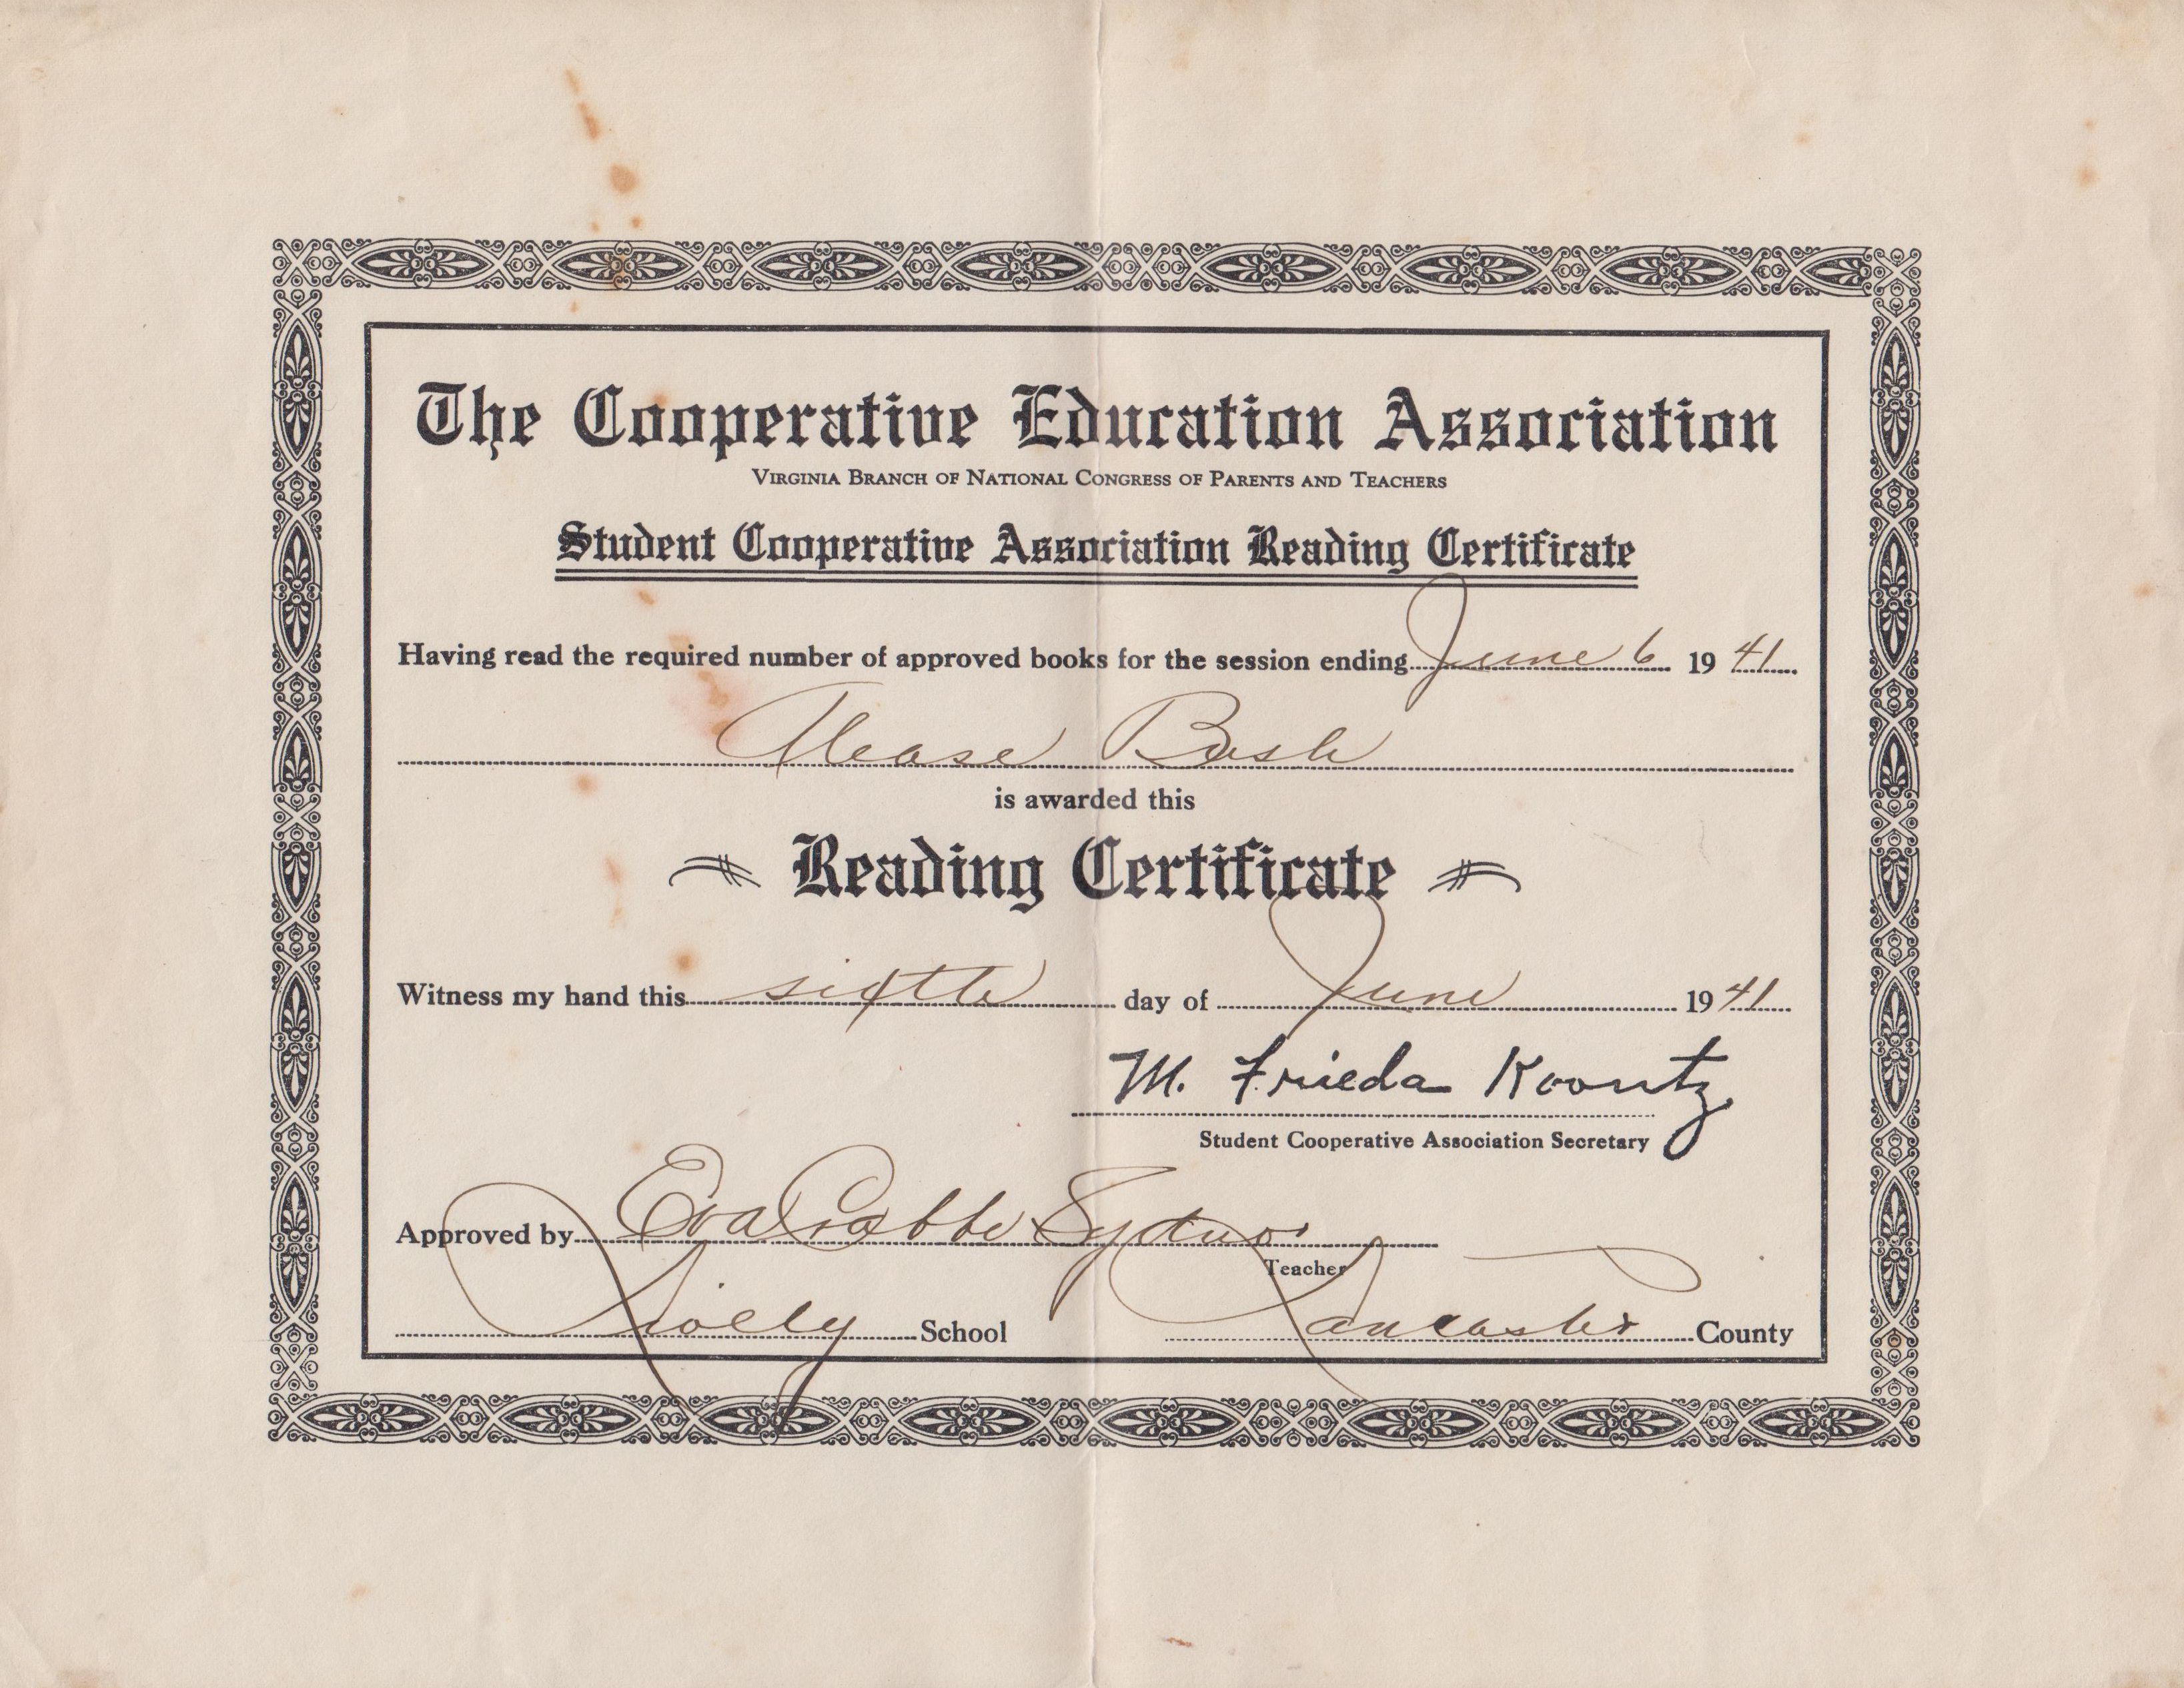 The Cooperative Education Association
VIRGINIA BRANCH OF NATIONAL CONGRESS OF PARENTS AND TEACHERS
Student Cooperative Association Reading Certificate
Having read the required number of approved books for the session ending June 6 1941
Alease Bush
is awarded this
Reading Certificate
Witness my hand this sixth day of June 1941
M. Frieda Koontz
Student Cooperative Association Secretary
Approved by Eva Sydnor
Teacher
School Lancaster County